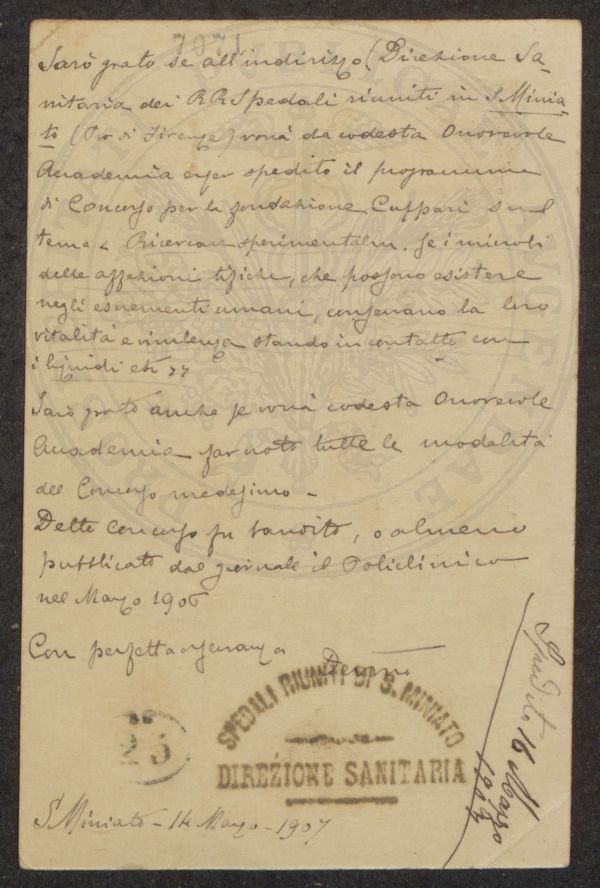 7071
Sarò grato se all'indirizzo (Direzione Sa-
nitaria dei RR Spedali riuniti in S. Minia-
to (Pro di Firenze) vorrà da codesta Onorevole
Accademia esser spedito il programma
di Concorso per la fondazione Cuppari sul
tema « Ricercare sperimentalm. se i microbi
delle affezioni tifiche, che possono esistere
negli escrementi umani, conservano la loro
vitalità e virulenza stando in contatto con
i liquidi etc »
Sarò grato anche se vorrà codesta Onorevole
Accademia far noto tutte le modalità
del Concorso medesimo -
Detto concorso fu bandito, o almeno
pubblicato dal giornale il Policlinico
nel Marzo 1906
Con perfetta osservanza
SPEDALI RIUNITI DI S. MINIATO
DIREZIONE SANITARIA
25
S. Miniato - 14 Marzo - 1907
Spedito 16 Marzo
1907